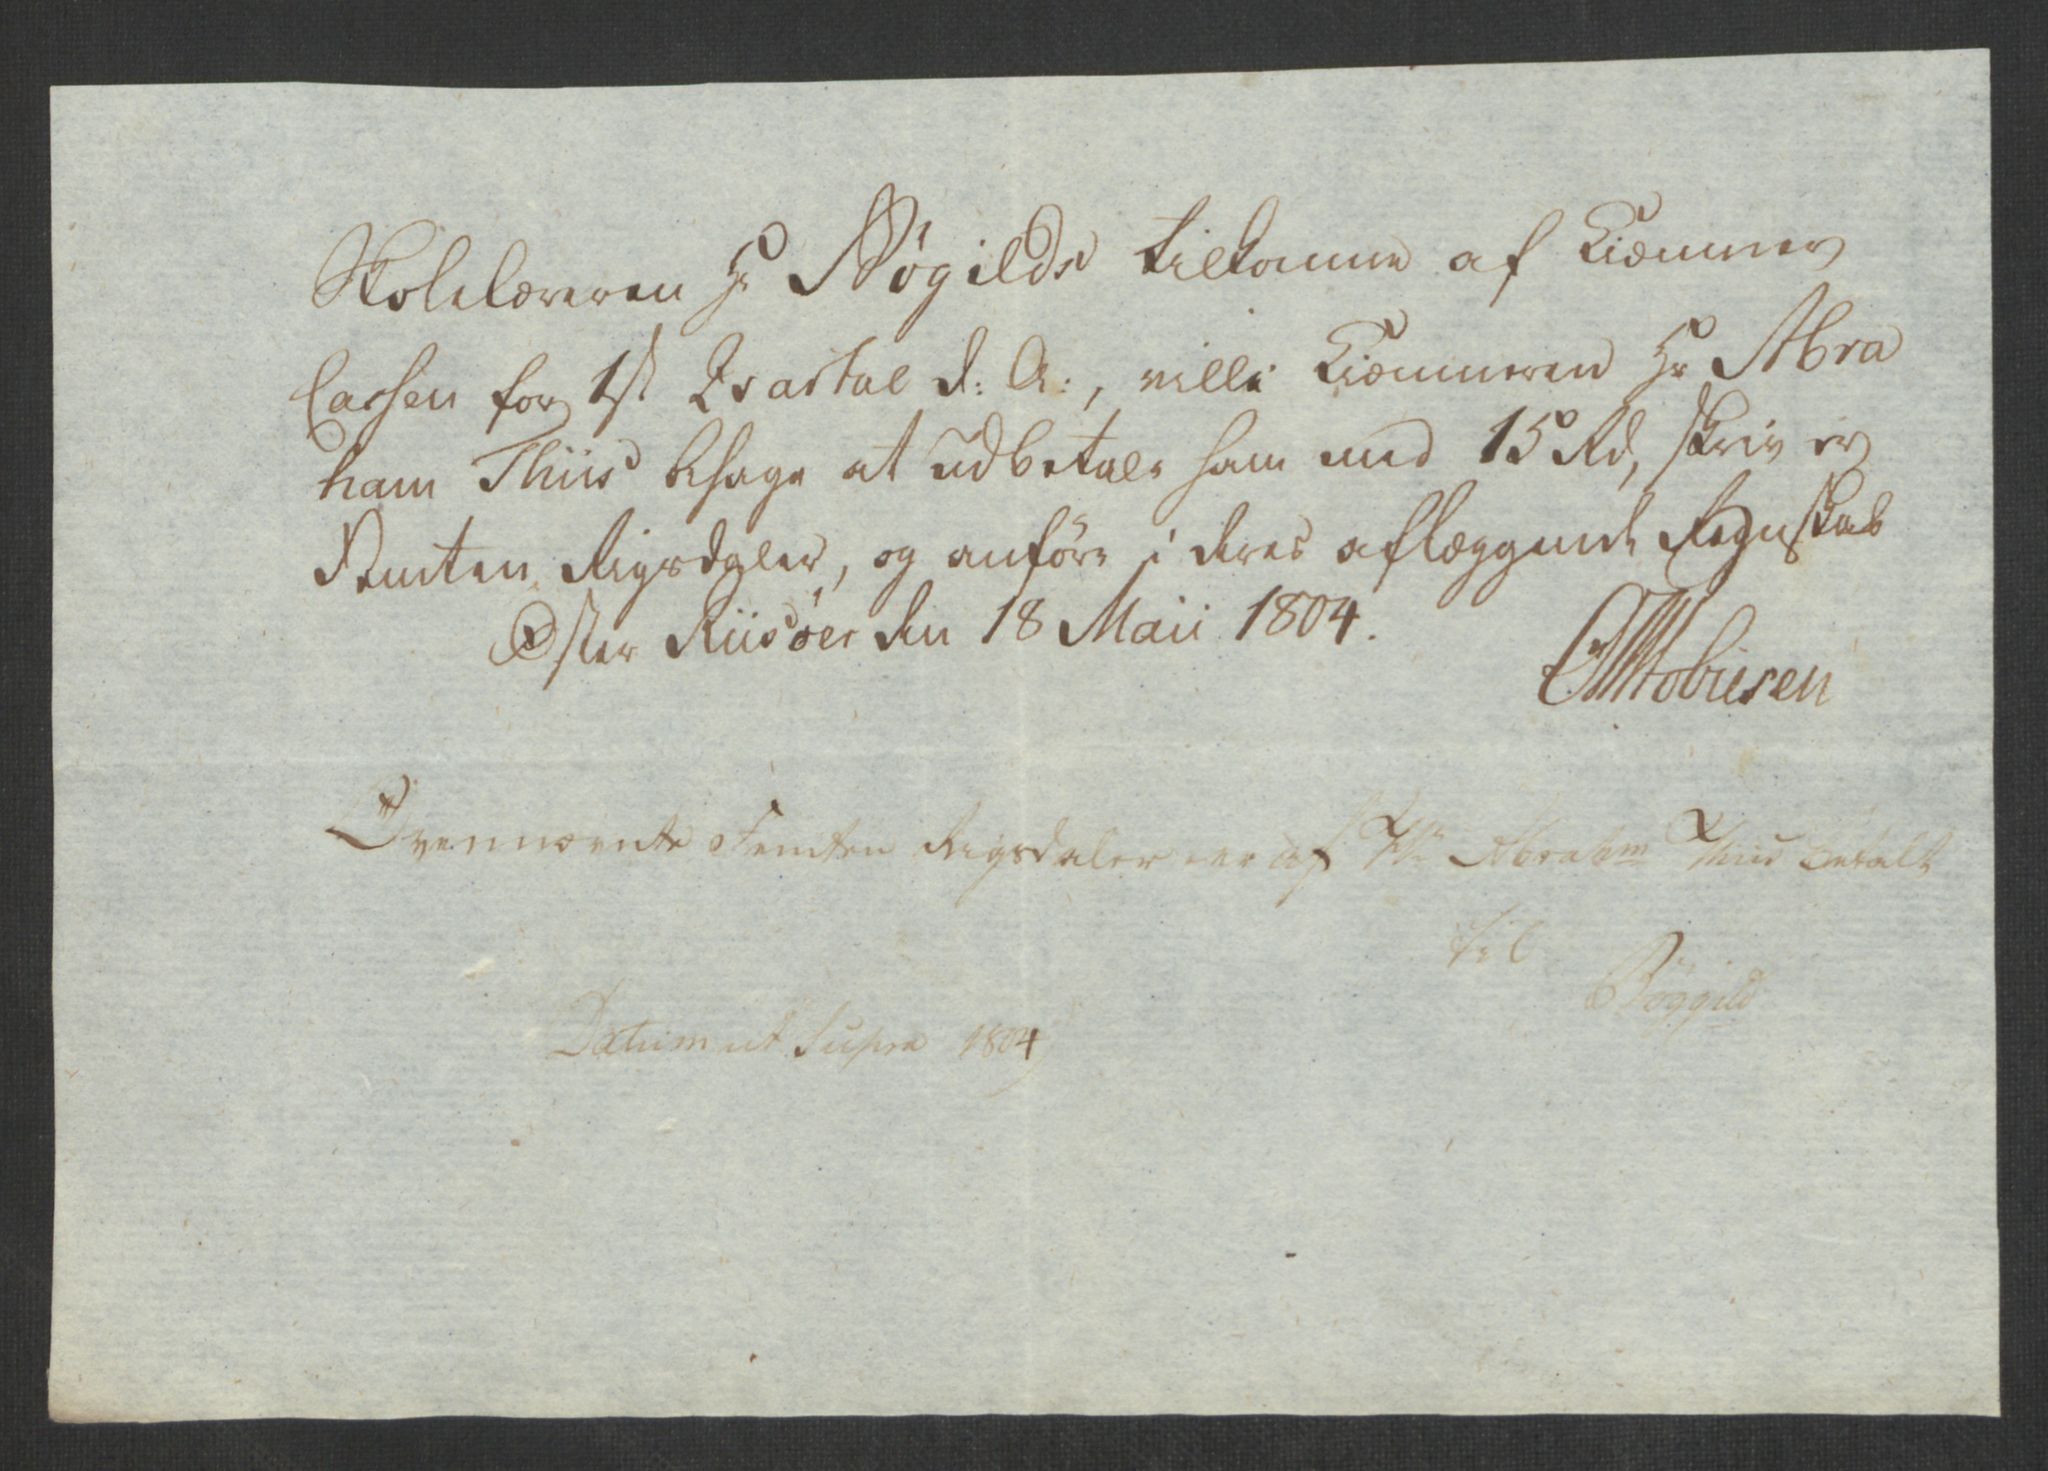 Skolelæreren Hr Bøgilds tilkomme af Kiemner
Cassen for 1st Qvartal d: A:, ville Kiemneren Hr Abra
ham Thiis behage at udbetale ham med 15 Rd, skriver
Femten Rigsdaler, og anføre i deres aflæggende Regnskab
Øster Riisøer den 18 Maii 1804.
Ovennævnte Femten Rigsdaler er af Hr Abrahm Thiis betalt
til
Bøggild
Datum ut Supra 1804